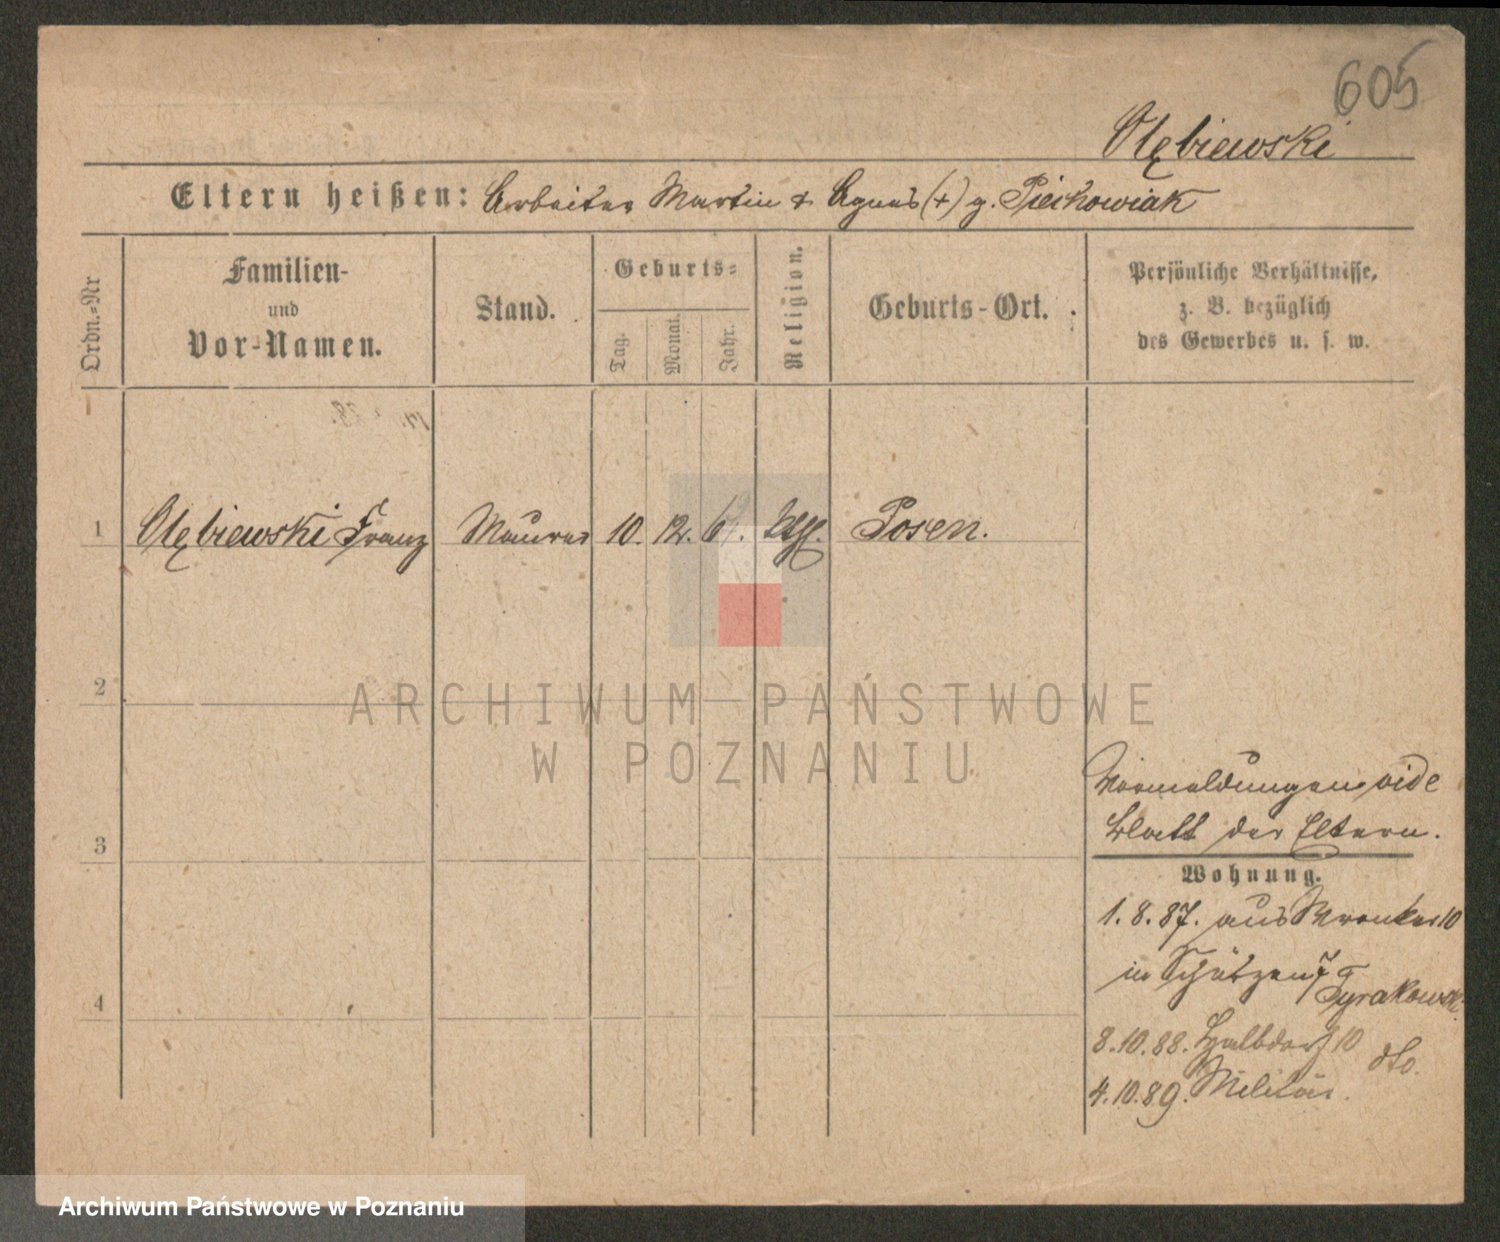 605
Olębiewski
Eltern heißen: Arbeiter Martin & Agnes (+) g. Piechowiak
Ordn.-Nr
Familien-
und
Vor-Namen.
Stand.
Geburts-
Tag.
Monat.
Jahr.
Religion.
Geburts-Ort.
Persönliche Verhältnisse,
z. B. bezüglich
des Gewerbes u. s. w.
1 Olębiewski Franz Maurer 10. 12. Posen.
2
3
4
Vormeldungen vide
Blatt der Eltern.
Wohnung.
1. 8. 87. aus Wronker 10
in Schützen 7
Tyrakowski
8. 10. 88. Halbdorf 10 dto.
4. 10. 89. Militär.
ARCHIWUM PAŃSTWOWE
W POZNANIU
Archiwum Państwowe w Poznaniu